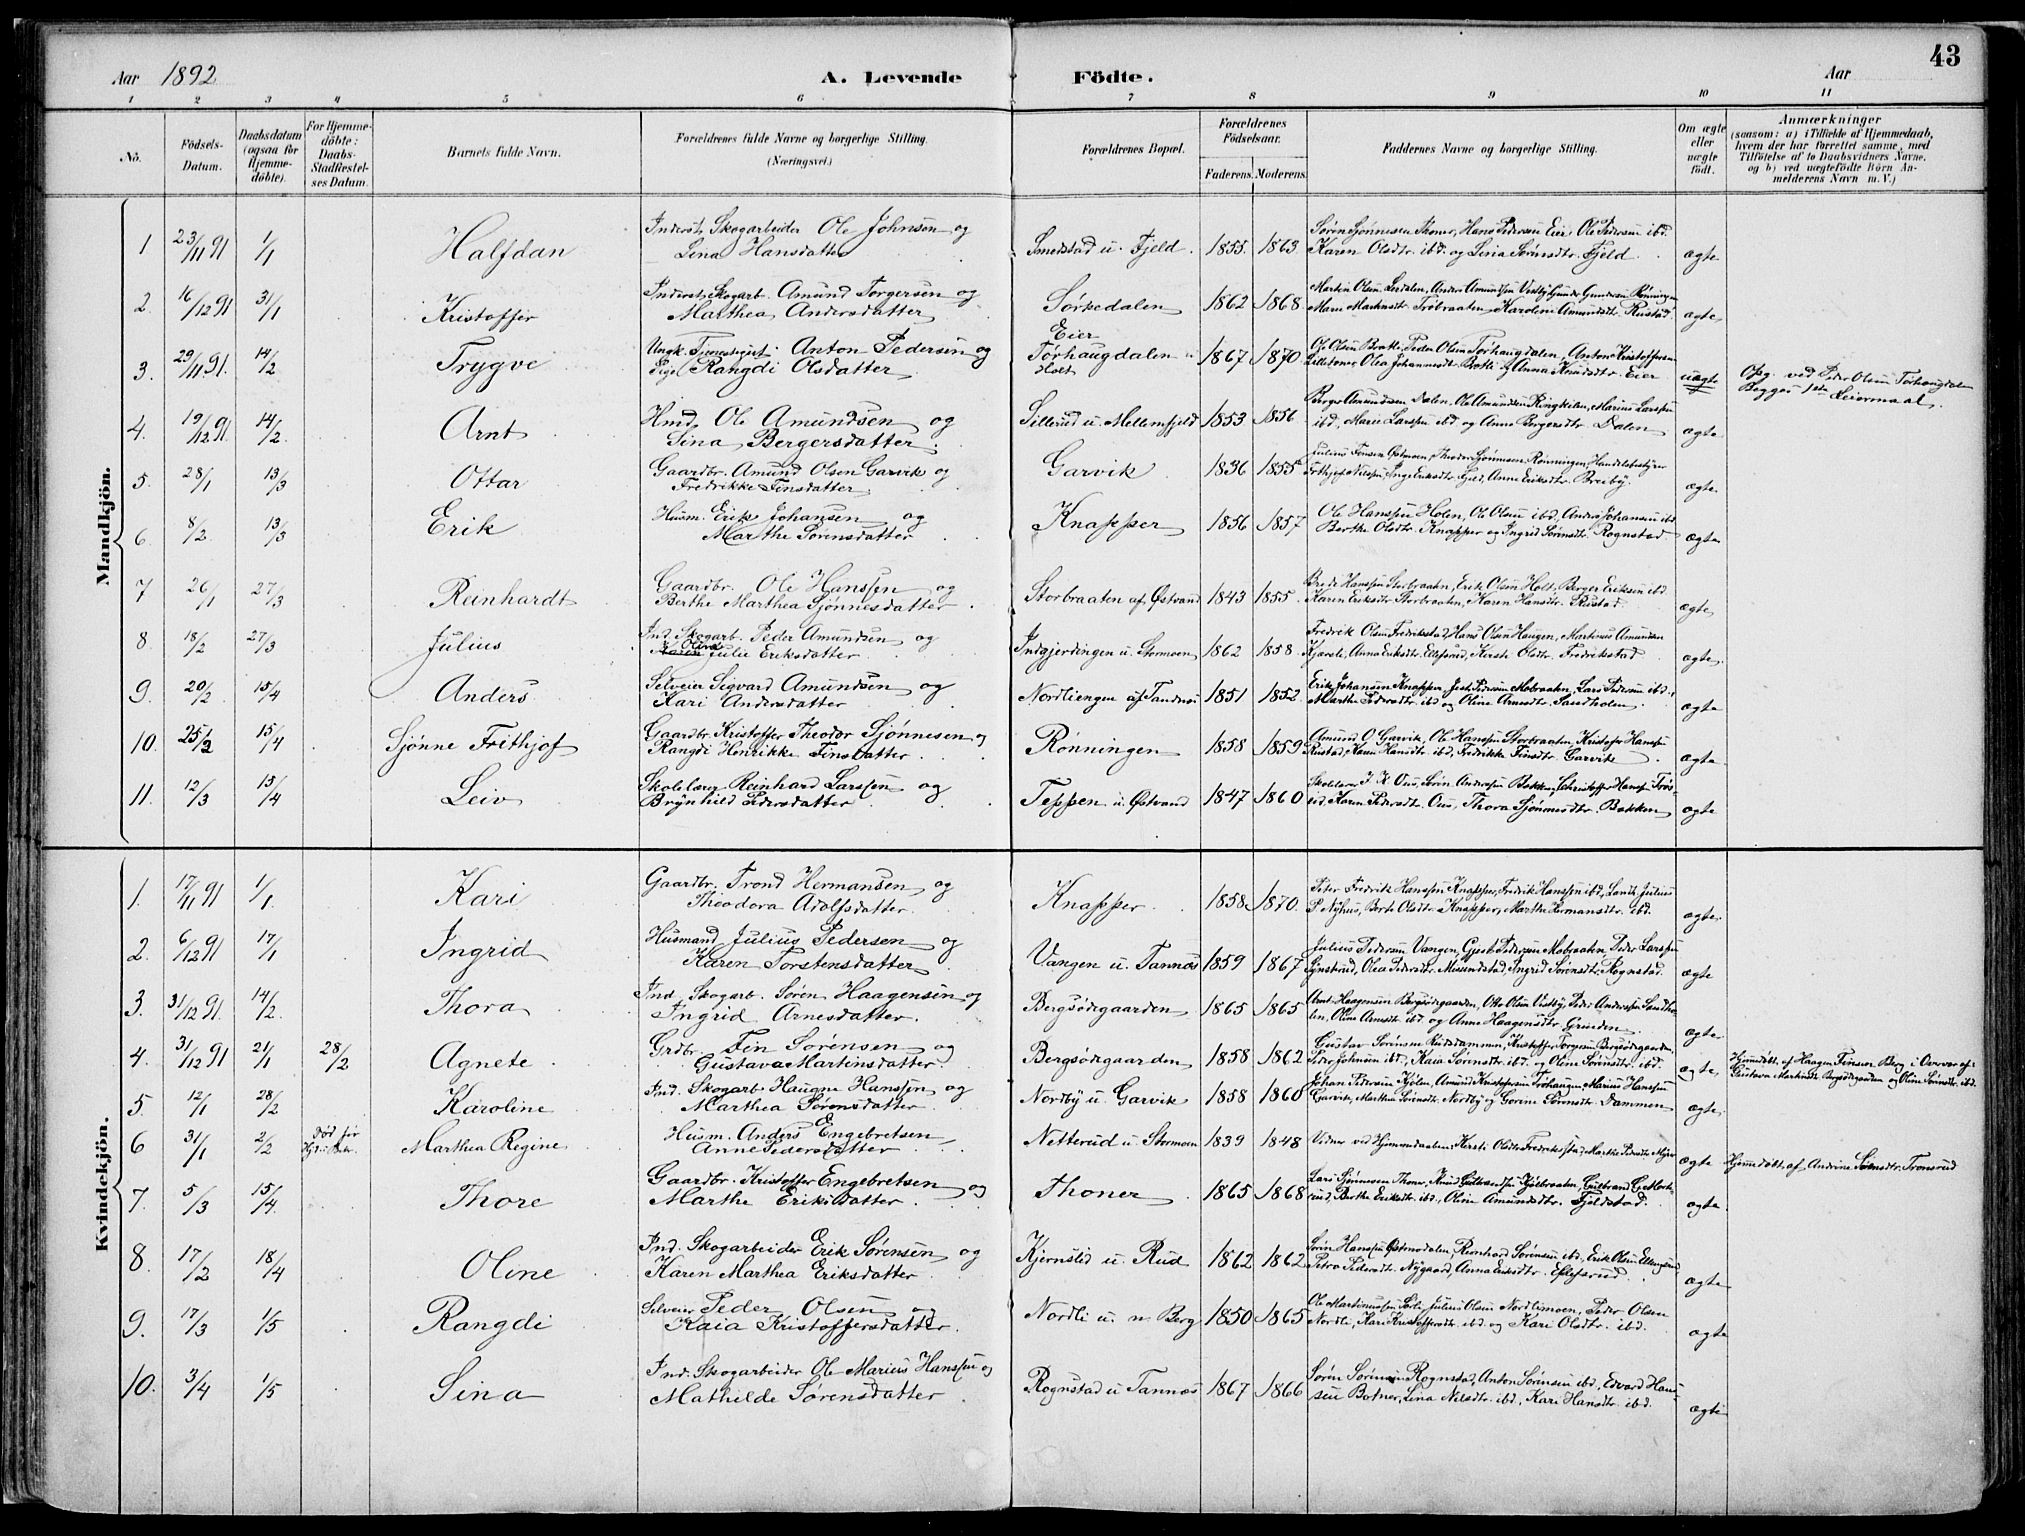 43
Aar 1892 A. Levende Födte. Aar
1 2 3 4 5 6 7 8 9 10 11
No. Födsels-Datum. Daabsdatum (ogsaa for Hjemme-döbte). For Hjemme-döbte: Daabs-Stadfæstel-ses Datum. Barnets fulde Navn. Forældrenes fulde Navne og borgerlige Stilling. (Næringsvei.) Forældrenes Bopæl. Forældrenes Födselsaar. Faderens. Moderens. Faddernes Navne og borgerlige Stilling. Om ægte eller uægte födt. Anmærkninger (saasom: a) i Tilfælde af Hjemmedaab, hvem der har forrettet samme, med Tilföielse af to Daabsvidners Navne, og b) ved uægtefödte Börn An-melderens Navn m. V.)
Mandkjön.
1 23/11 91 1/1 Halfdan Inderst, Skogarbeider Ole Johnsen og
Lina Hansdatter Smedstad u. Fjeld. 1855. 1863 Sören Sjönnesen Thoner, Hans Pedersen Eier, Ole Pedersen ibd.
Karen Olsdtr. ibd. og Lina Sörensdtr. Fjeld ægte
2. 16/12 91 31/1 Kristoffer Inderst, Skogarb. Amund Torgersen og
Marthea Andersdatter Sörkedalen 1862 1868 Martin Olsen Leedalen, Anders Amundsen Vestby, Gunder Gundersen Rönningen
Maren Martinsdtr. Tröbraaten, Karoline Amundsdtr. Rustad ægte
3. 29/11 91. 14/2 Trygve Ungk. Tjenestegut Anton Pedersen og
Pige Rangdi Olsdatter Eier
Törhaugdalen u.
Holt 1867 1870 Ole Olsen Botle, Peder Olsen Törhaugdalen, Anton Kristoffersen
Lilletoner, Olea Johannesdtr. Botli og Anna Knudsdtr. Eier uægte Opg. ved Peder Olsen Törhaugdalen
Begges 1ste Leiermaal.
4. 19/12 91 14/2. Arnt Hmd. Ole Amundsen og
Sina Bergersdatter Sillerud u. Mellemfjeld 1853 1856 Berger Amundsen Dalen, Ole Amundsen Ringkilen, Marius Larssen
ibd., Marie Larssen ibd. og Anne Bergersdtr. Dalen ægte
5. 28/1 13/3 Ottar Gaardbr. Amund Olsen Garvik og
Fredrikke Finsdatter Garvik 1836 1855 Julius Finsen Östmoen, Theodor Sjönnesen Rönningen, Handelsbetyrer
Frithjof Nilssen, Inge Eriksdtr. Fjeld, Anne Eriksdtr. Breiby. ægte
6. 8/2. 13/3 Erik Husm. Erik Johansen og
Marthe Sörensdatter Knapper 1856 1857 Ole Hanssen Holen, Ole Olsen ibd., Andr. Johansen ibd.
Berthe Olsdtr. Knapper og Ingrid Sörensdtr. Rognstad ægte
7 26/1 27/3 Reinhardt Gaardbr. Ole Hanssen og
Berthe Marthea Sjönnesdatter Storbraaten af Östvand 1843 1855 Brede Hanssen Storbraaten, Erik Olsen Holt, Berger Eriksen ibd.
Karen Eriksdtr. Storbraaten, Karen Hansdtr. Rustad. ægte
8 18/2 27/3 Julius Ind. Skogarb. Peder Amundsen og
Olivia
Karen Julie Eriksdatter Indgjerdingen u. Stormoen 1862 1858 Fredrik Olsen Fredrikstad, Hans Olsen Haugen, Martinus Amundsen
Kjærstli, Anna Eriksdtr. Ellefsrud, Kersti Olsdtr. Fredrikstad ægte.
9. 20/2 15/4 Anders Selveier Sigvard Amundsen og
Kari Andersdatter Nordliengen af Tandnes 1851 1852 Erik Johansen Knapper, Gjest Pedersen Mobraaten, Lars Pedersen ibd.,
Marthe Pedersdtr. ibd. og Oline Arnesdtr. Sandholen. ægte
10. 25/2 15/4 Sjönne Frithjof Gaardbr. Kristoffer Theodor Sjönnesen og
Rangdi Henrikke Finsdatter Rönningen 1858 1859 Amund O. Garvik, Ole Hanssen Storbraaten, Kristofer Hanssen
Rustad, Karen Hansdtr. ibd., Fredrikke Finsdtr. Garvik ægte
11. 12/3 15/4 Leiv Skolelærer Reinhard Larssen og
Brynhild Pedersdatter Teppen u. Östvand 1847 1860 Skolelærer J. K. Ous, Sören Andersen Bakken, Christoffer Hanssen Trös-
rud, Karen Pedersdtr. Ous, Thora Sjönnesdtr. Bakken ægte
Kvindekjön.
1. 17/11 91 1/1. Kari Gaardbr. Trond Hermansen og
Theodora Adolfsdatter Knapper. 1858 1870. Peter Fredrik Hanssen Knapper, Fredrik Hanssen ibd., Lauritz Julius
P. Nyhus, Berte Olsdtr. Knapper, Marthe Hermansdtr. ibd. ægte.
2. 6/12 91 17/1 Ingrid Husmand Julius Pedersen og
Karen Torstensdatter Vangen u. Tannæs 1859 1867 Julius Pedersen Vangen, Gjest Pedersen Mobraaten, Peder Larssen
Lynsrud, Olea Pedersdtr. Misundstad, Ingrid Sörensdtr. Rognstad. ægte
3. 31/12 91. 14/2. Thora Ind. Skogarb. Sören Haagensen og
Ingrid Arnesdatter. Bergsödegaarden 1865 1865 Arnt Haagensen Bergsödegaarden, Otto Olsen Vestby, Peder Anderssen Sandho-
len, Oline Arnesdtr. ibd. og Anne Haagensdtr. Grinden ægte
4. 31/12 91 21/1 28/2 Agnete Grdbr. Fin Sörensen og
Gustava Martinsdatter Bergsödegaarden 1858 1862 Gustav Sörensen Kutsdammen, Kristoffer Torgersen Bergsödegaarden,
Peder Johnsen ibd., Kaia Sörensdtr. ibd. og Oline Sörensdtr. ibd. ægte Hjemmedöbt af Haagen Finsen Berg i Overvær af:
Gustava Martinsdtr. Bergsödegaarden og Oline Sörensdtr. ibd.
5. 12/1 28/2 Karoline Ind. Skogarb. Haugne Hanssen og
Marthea Sörensdatter Nordby u. Garvik 1858 1860 Johan Pedersen Kjölen, Amund Kristoffersen Törhaugen, Marius Hanssen
Garvik, Marthea Sörensdtr. Nordby og Gorine Sörensdtr. Dammen ægte.
6 31/1 2/2 Död för Marthea Regine Husm. Anders Engebretsen
Anne Pedersdatter Netterud u. Stormoen 1839 1848 Vidner ved Hjemmedaaben: Kersti Olsdtr. Fredrikstad, Marthe Pedersdtr. ægte Hjemmedöbt af Andrine Sörensdtr. Tronsrud
7. 5/3 15/4. Thore Gaardbr. Kristoffer Engebretsen og
Marthe Eriksdatter Thoner 1865 1868 Lars Sjönnesen Thoner, Knud Gulbrandsen Kjölbraaten, Gulbrand G. Mork-
rud, Berthe Eriksdtr. ibd., Oline Amundsdtr. Fjeldstad. ægte
8. 17/2 18/4 Oline Ind. Skogarbeider Erik Sörensen og
Karen Marthea Eriksdatter Kjernslid u. Rud 1862 1862 Sören Hanssen Östmodalen, Reinhard Sörensen ibd. Erik Olsen Ellefsrud,
Petra Pedersdtr. Nygaard, Anna Eriksdtr. Ellefsrud ægte
9. 17/3 1/5 Rangdi Selveier Peder Olsen og
Kaia Kristoffersdatter. Nordli u. n Berg 1850 1865 Ole Martinussen Sörli, Julius Olsen Nordlimoen, Peder Olsen
Nordli, Kari Kristoffersdtr. ibd. og Kari Olsdtr. ibd. ægte
10. 3/4 1/5 Sina Ind. Skogarbeider Ole Marius Hanssen og
Mathilde Sörensdatter Rognstad u Tannæs 1867 1866 Sören Sörensen Rognstad, Anton Sörensen ibd., Edvard Han-
sen Botner, Lina Nilsdtr. ibd., Kari Hansdtr. ibd. ægte